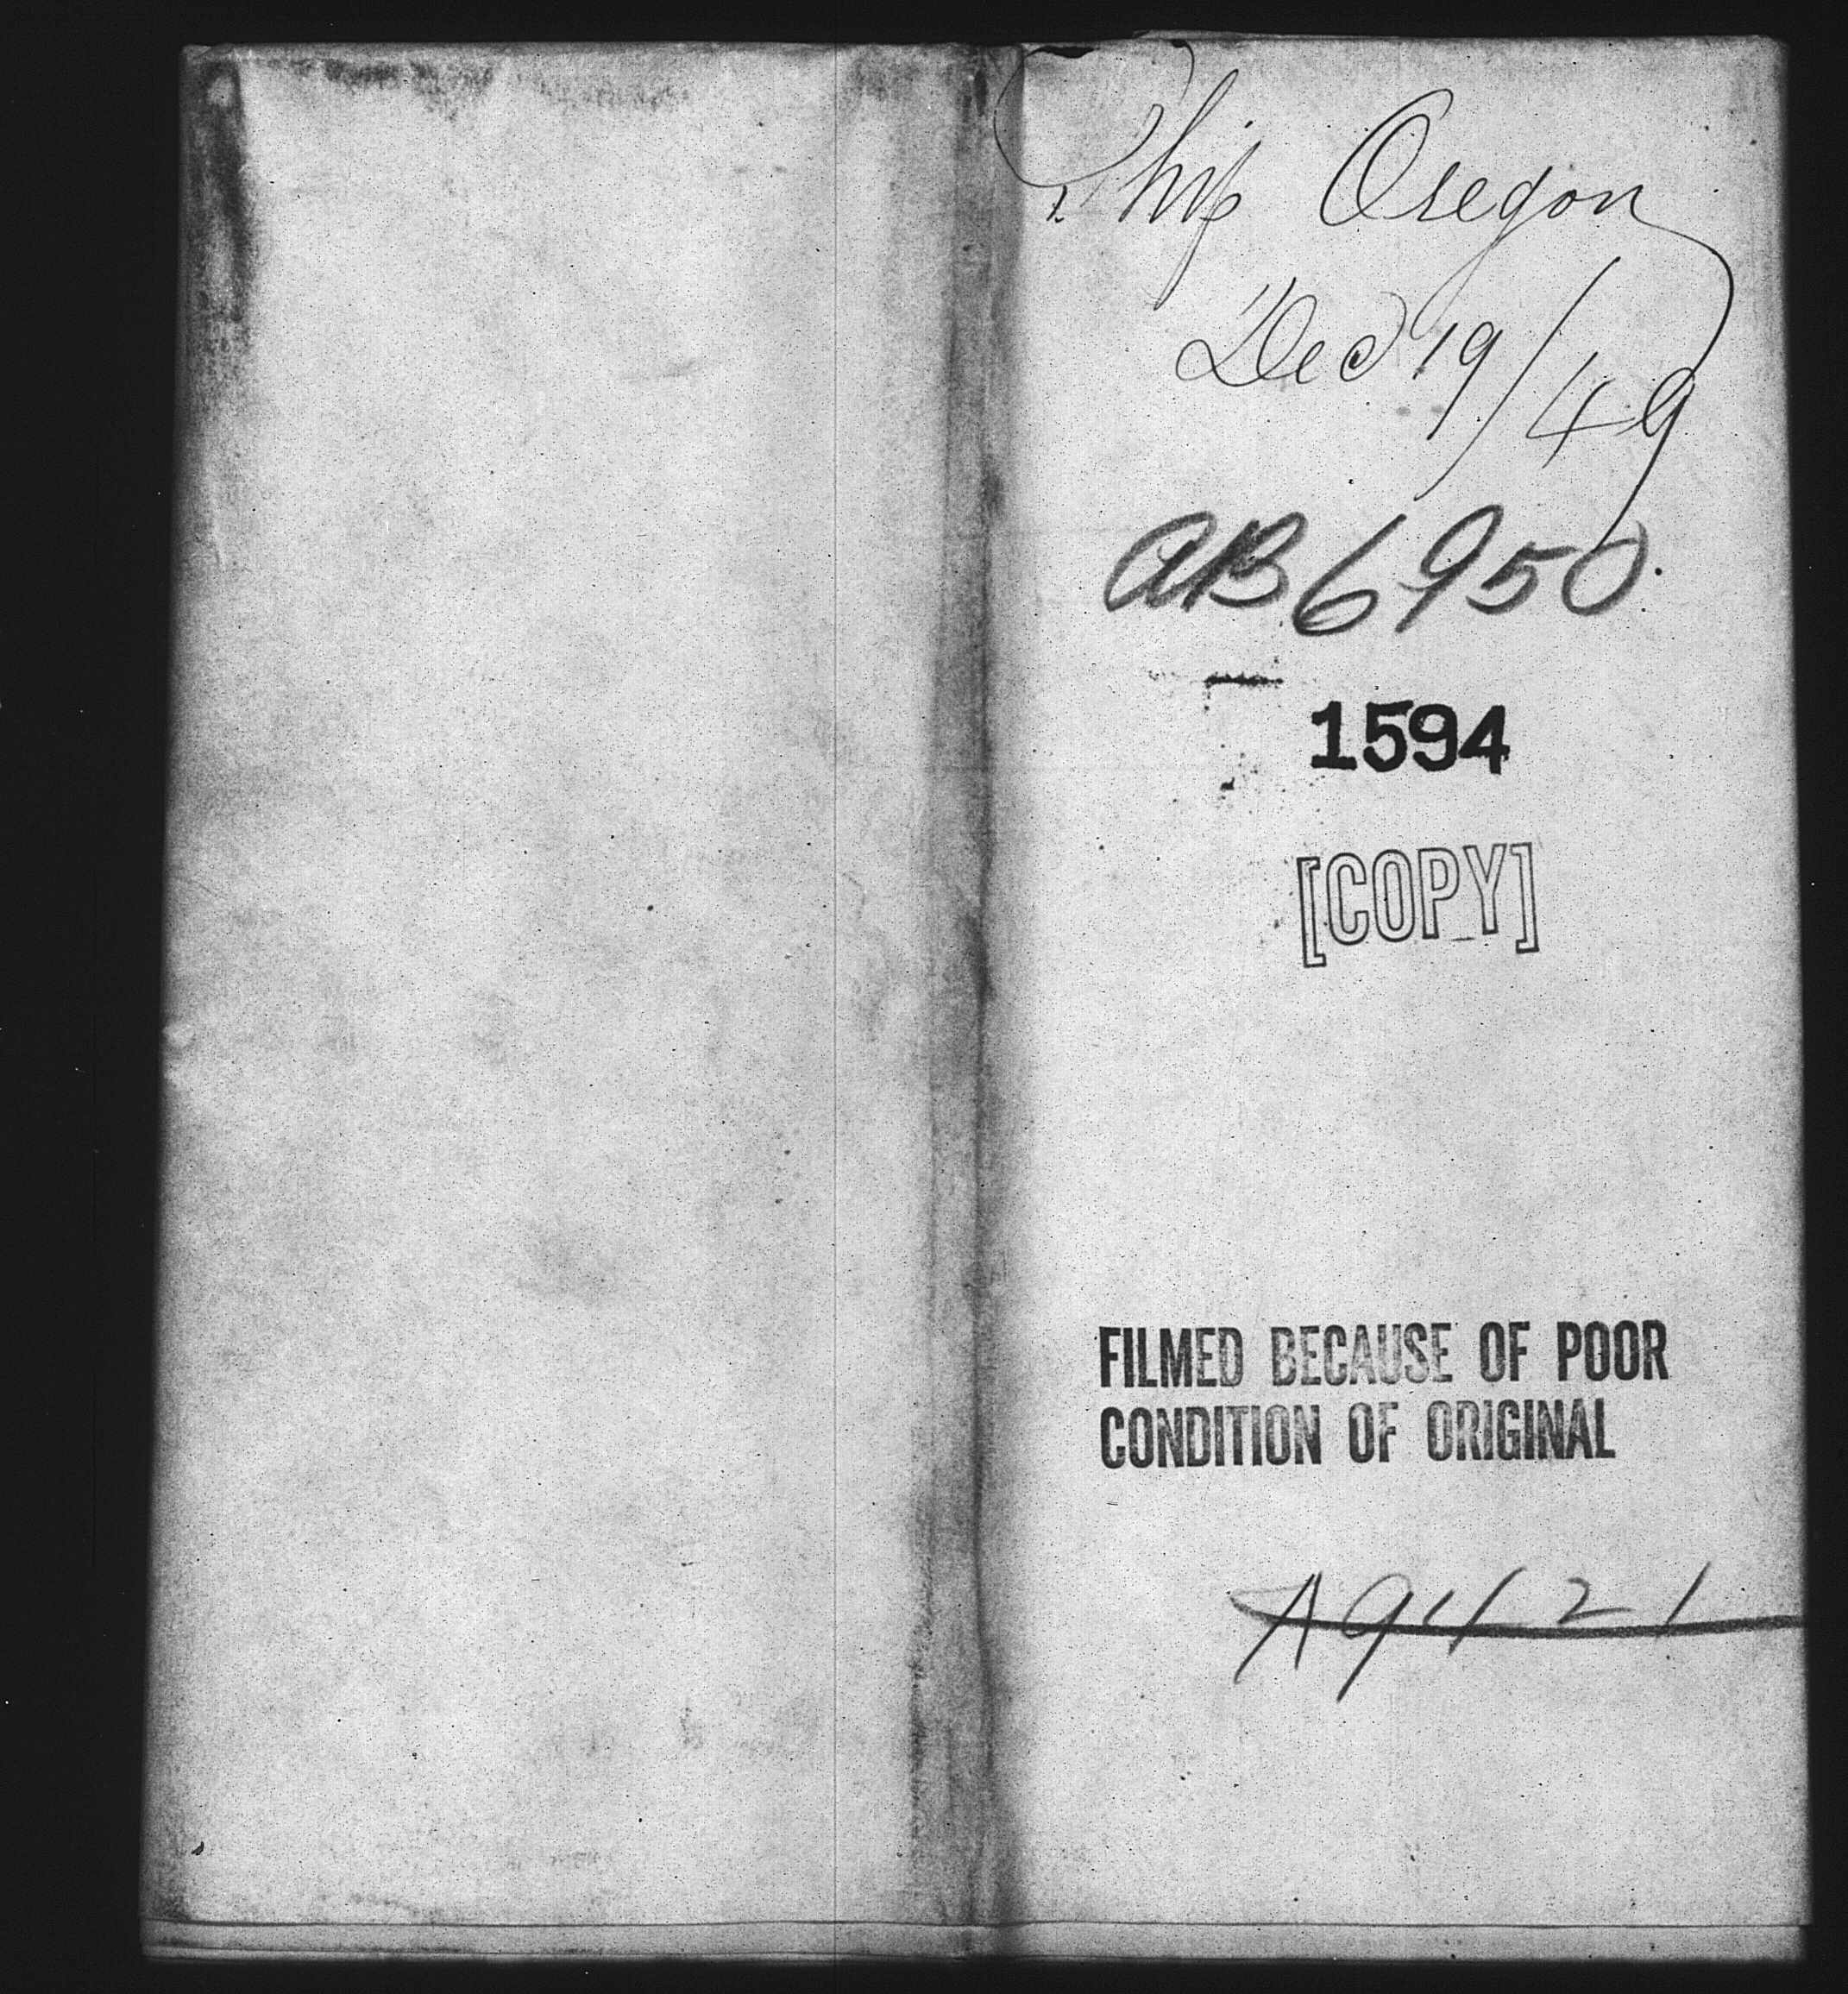 Ship Oregon
Dec 19/49
AB6950.
1594
[COPY]
FILMED BECAUSE OF POOR
CONDITION OF ORIGINAL
A9421